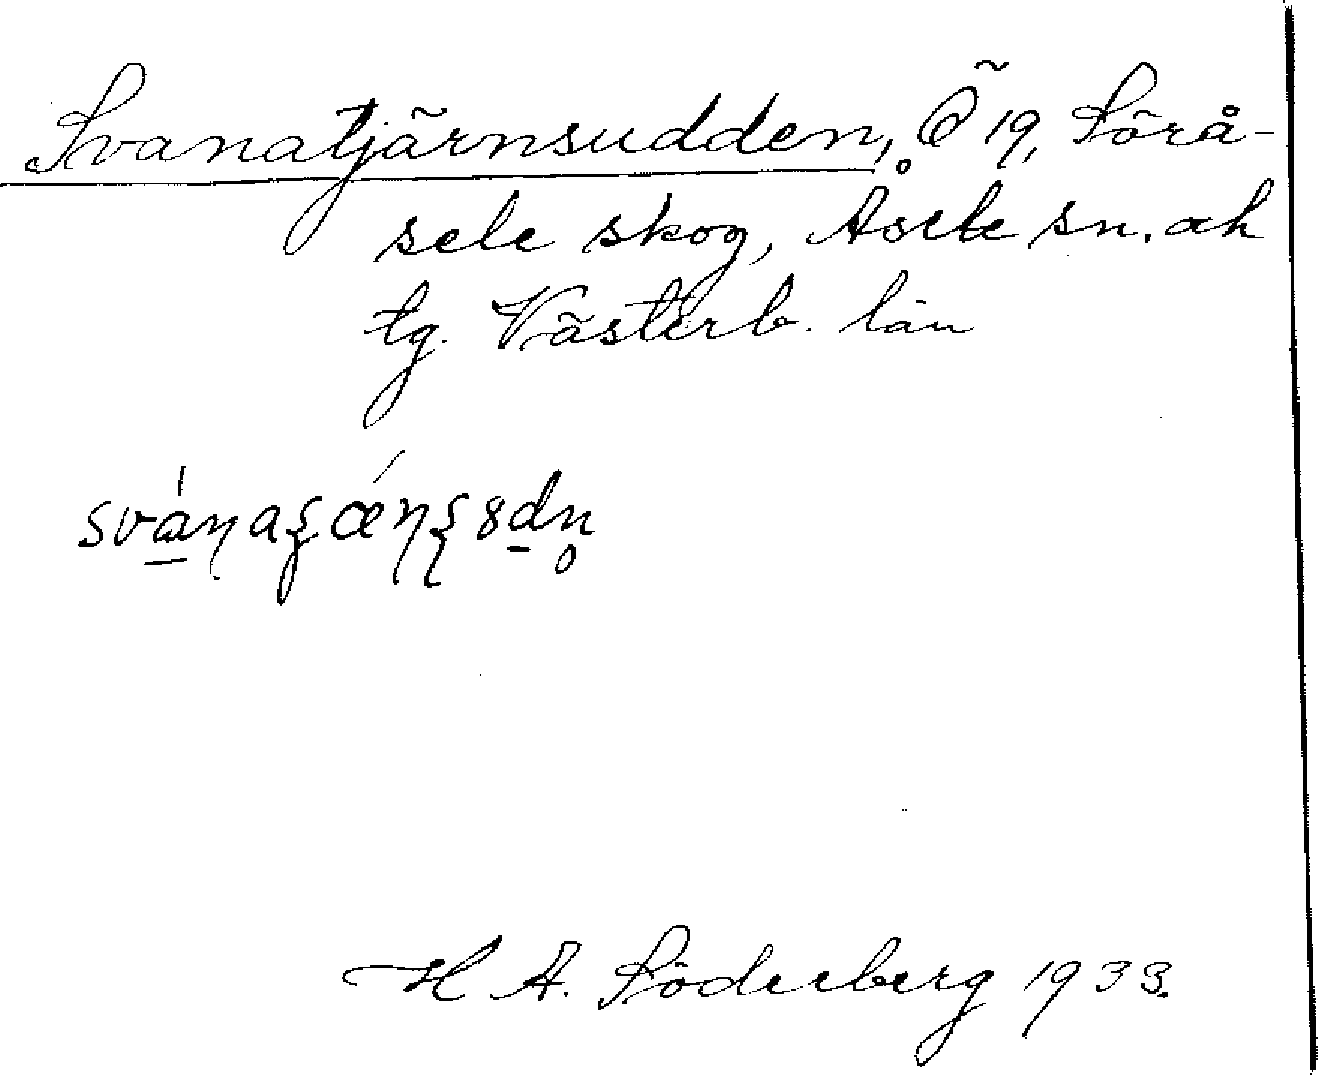 Svanatjärnsudden, Ö 19, Sörå-
sele skog, Åsele sn. och
tg. Västerb. län
H A. Söderberg 1933.